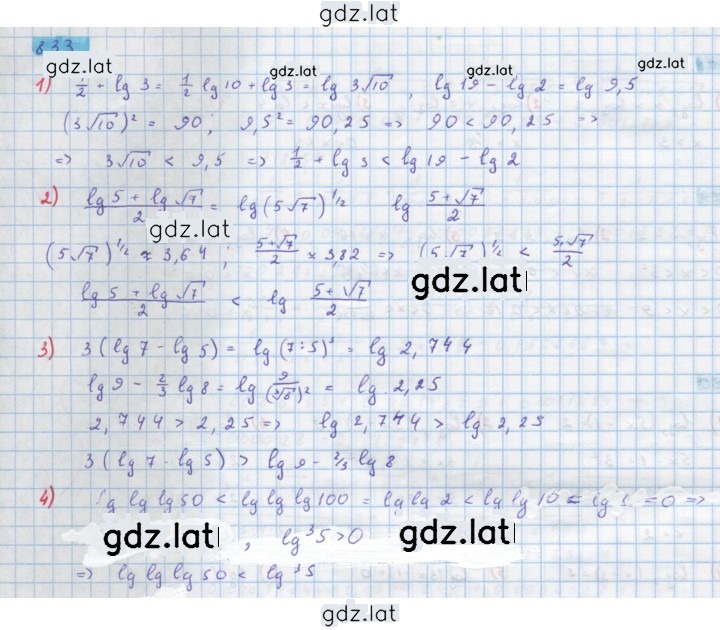 gdz.lat
833
gdz.lat
gdz.lat
1) 1/2 + lg 3 = 1/2 lg 10 + lg 3 = lg 3√10 , lg 19 - lg 2 = lg 9,5
(3√10)² = 90; 9,5² = 90,25 => 90 < 90,25 =>
=> 3√10 < 9,5 => 1/2 + lg 3 < lg 19 - lg 2
2) (lg 5 + lg √7)/2 = lg (5√7)^1/2 lg (5+√7)/2
gdz.lat
(5√7)^1/2 ≈ 3,64 ; (5+√7)/2 ≈ 3,82 => (5√7)^1/2 < (5+√7)/2
gdz.lat
(lg 5 + lg √7)/2 < lg (5+√7)/2
3) 3(lg 7 - lg 5) = lg (7:5)³ = lg 2,744
lg 9 - 2/3 lg 8 = lg 9/(³√8)² = lg 2,25
2,744 > 2,25 => lg 2,744 > lg 2,25
3(lg 7 - lg 5) > lg 9 - 2/3 lg 8
4) lg lg lg 50 < lg lg lg 100 = lg lg 2 < lg lg 10 = lg 1 = 0 =>
gdz.lat , lg³5 > 0 gdz.lat
=> lg lg lg 50 < lg³5
gdz.lat